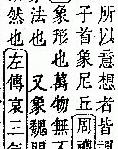 所以意想者皆謂
子首象尼丘周禮
象形也萬物無不
象法也 又象魏門
然也左傳哀三年